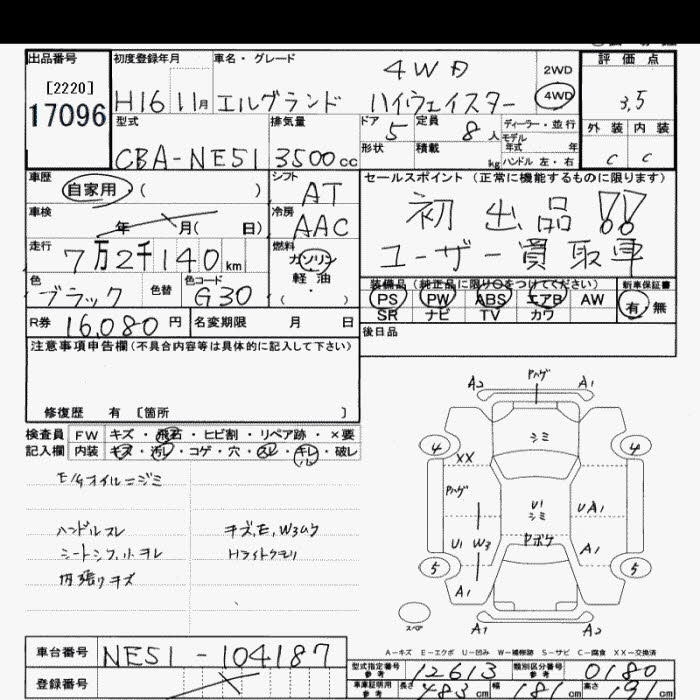 出品番号 初度登録年月 車名・グレード 評価点
[2220]
17096
H16 11月 エルグランド ハイウェイスター 4WD
2WD
4WD
3.5
型式 排気量 ドア 定員 ディーラー・並行 外装 内装
CBA-NE51 3500cc 5 8人 モデル年式 年 C C
形状 積載 kg ハンドル 左・右
車歴 自家用・( ) シフト AT
セールスポイント (正常に機能するものに限ります)
初出品!!
ユーザー買取車
車検 年 月( 日) 冷房 AAC
走行 7万2千140km 燃料 ガソリン
軽油
( ・ )
色 ブラック 色替 色コード G30
装備品(純正品に限り○をつけてください) 新車保証書
PS PW ABS エアB AW 有・無
SR ナビ TV カワ
R券 16,080円 名変期限 月 日
後日品
注意事項申告欄(不具合内容等は具体的に記入して下さい)
修復歴 有 〔箇所 〕
検査員 FW キズ・飛石・ヒビ割・リペア跡・×要
記入欄 内装 キズ・汚レ・コゲ・穴・スレ・キレ・破レ
E/Gオイルニジミ
ハンドルスレ キズ、E、W3ムク
シートシワ、小ヨレ Hライトクモリ
内張りキズ
A2 Pハゲ A1
シミ
4 4
XX
Pハゲ
U1
シミ
UA1
U1 W3 Pボケ A1
5 5
A1
スペア A1 A2
A-キズ E-エクボ U-凹み W-補修跡 S-サビ C-腐食 XX-交換済
車台番号 NE51-104187
型式指定番号 参考 12613 類別区分番号 参考 0180
登録番号
車庫証明用 参考 長さ 483cm 幅 181cm 高さ 191cm